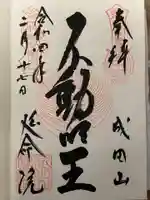 奉拝
成田山
不動明王
令和四年
二月二十七日